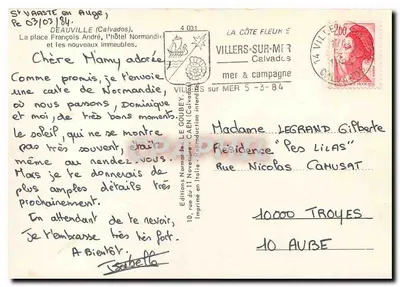 St VAASTE en Auge,
Le 03/03/84.
DEAUVILLE (Calvados).
La place François André, l'hôtel Normandie
et les nouveaux immeubles.
Chère M'amy adorée,
Comme promis, je t'envoie
une carte de Normandie,
où nous passons, Dominique
et moi, de très bons moments.
Le soleil, qui ne se montre
pas très souvent, était
même au rendez-vous.
Mais je te donnerais de
plus amples détails très
prochainement.
En attendant de te revoir,
Je t'embrasse très très fort.
A Bientôt.
Isabelle
Editions Normandes LE GOUBEY
10, rue du 11 Novembre - CAEN (Calvados)
Imprimé en Italie - Reproduction interdite
4 031
LA CÔTE FLEURIE
VILLERS-SUR-MER
Calvados
mer & campagne
VILLERS sur MER 5-3-84
14 VILLERS
2,00
Madame LEGRAND Gilberte
Résidence "Les LILAS"
Rue Nicolas CAMUSAT
10000 TROYES
10 AUBE